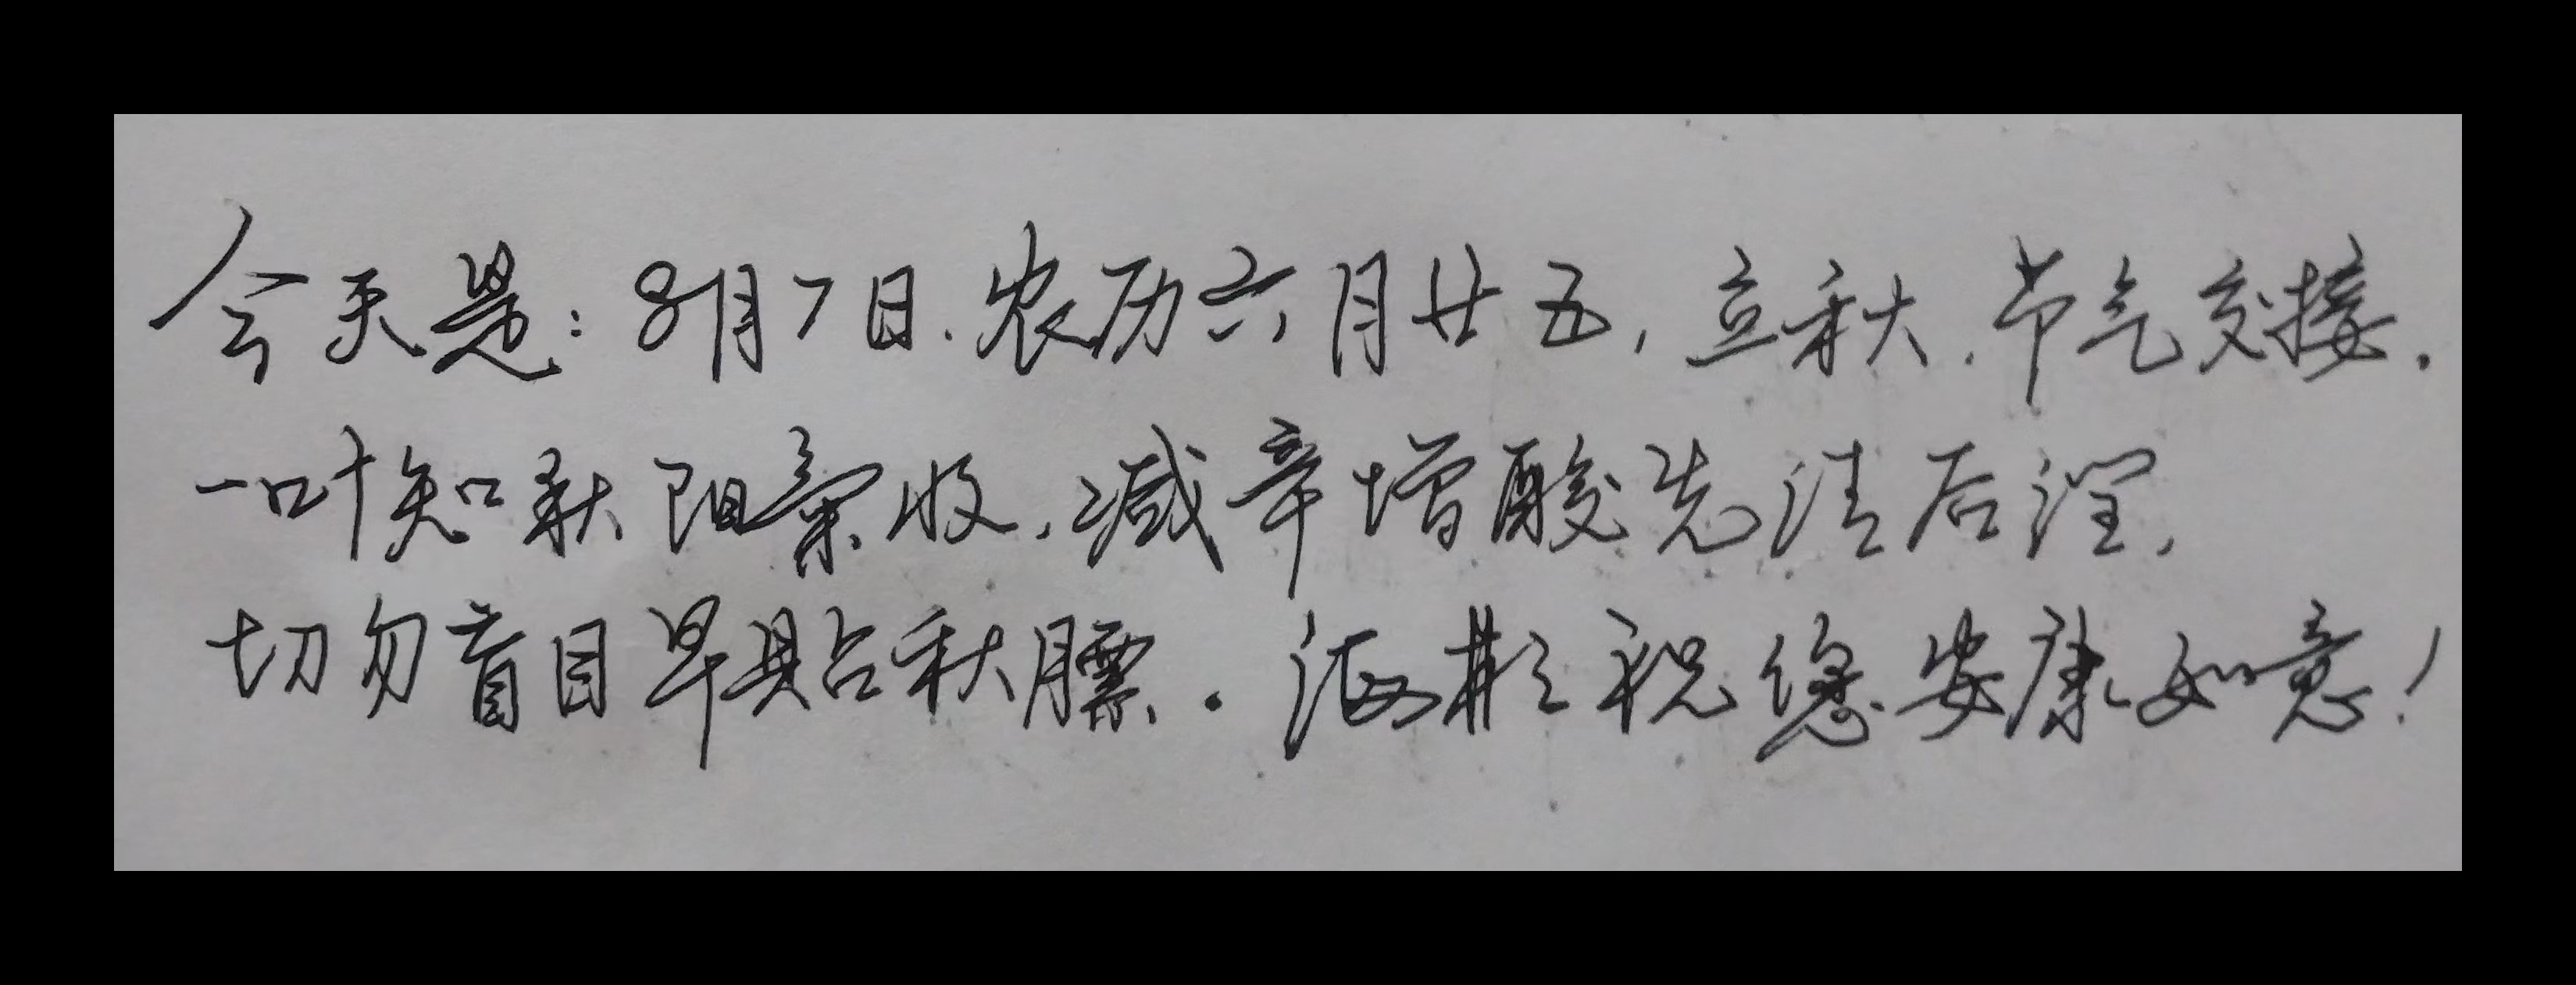 今天是：8月7日.农历六月廿五，立秋.节气交接.
一叶知秋阳气收，减辛增酸先清后润，
切勿盲目早贴秋膘.海彬祝您安康如意！